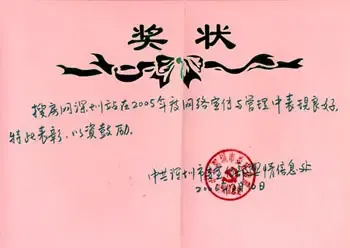 奖状
搜房网深圳站在2005年度网络宣传与管理中表现良好,
特此表彰,以资鼓励。
中共深圳市委宣 舆情信息处